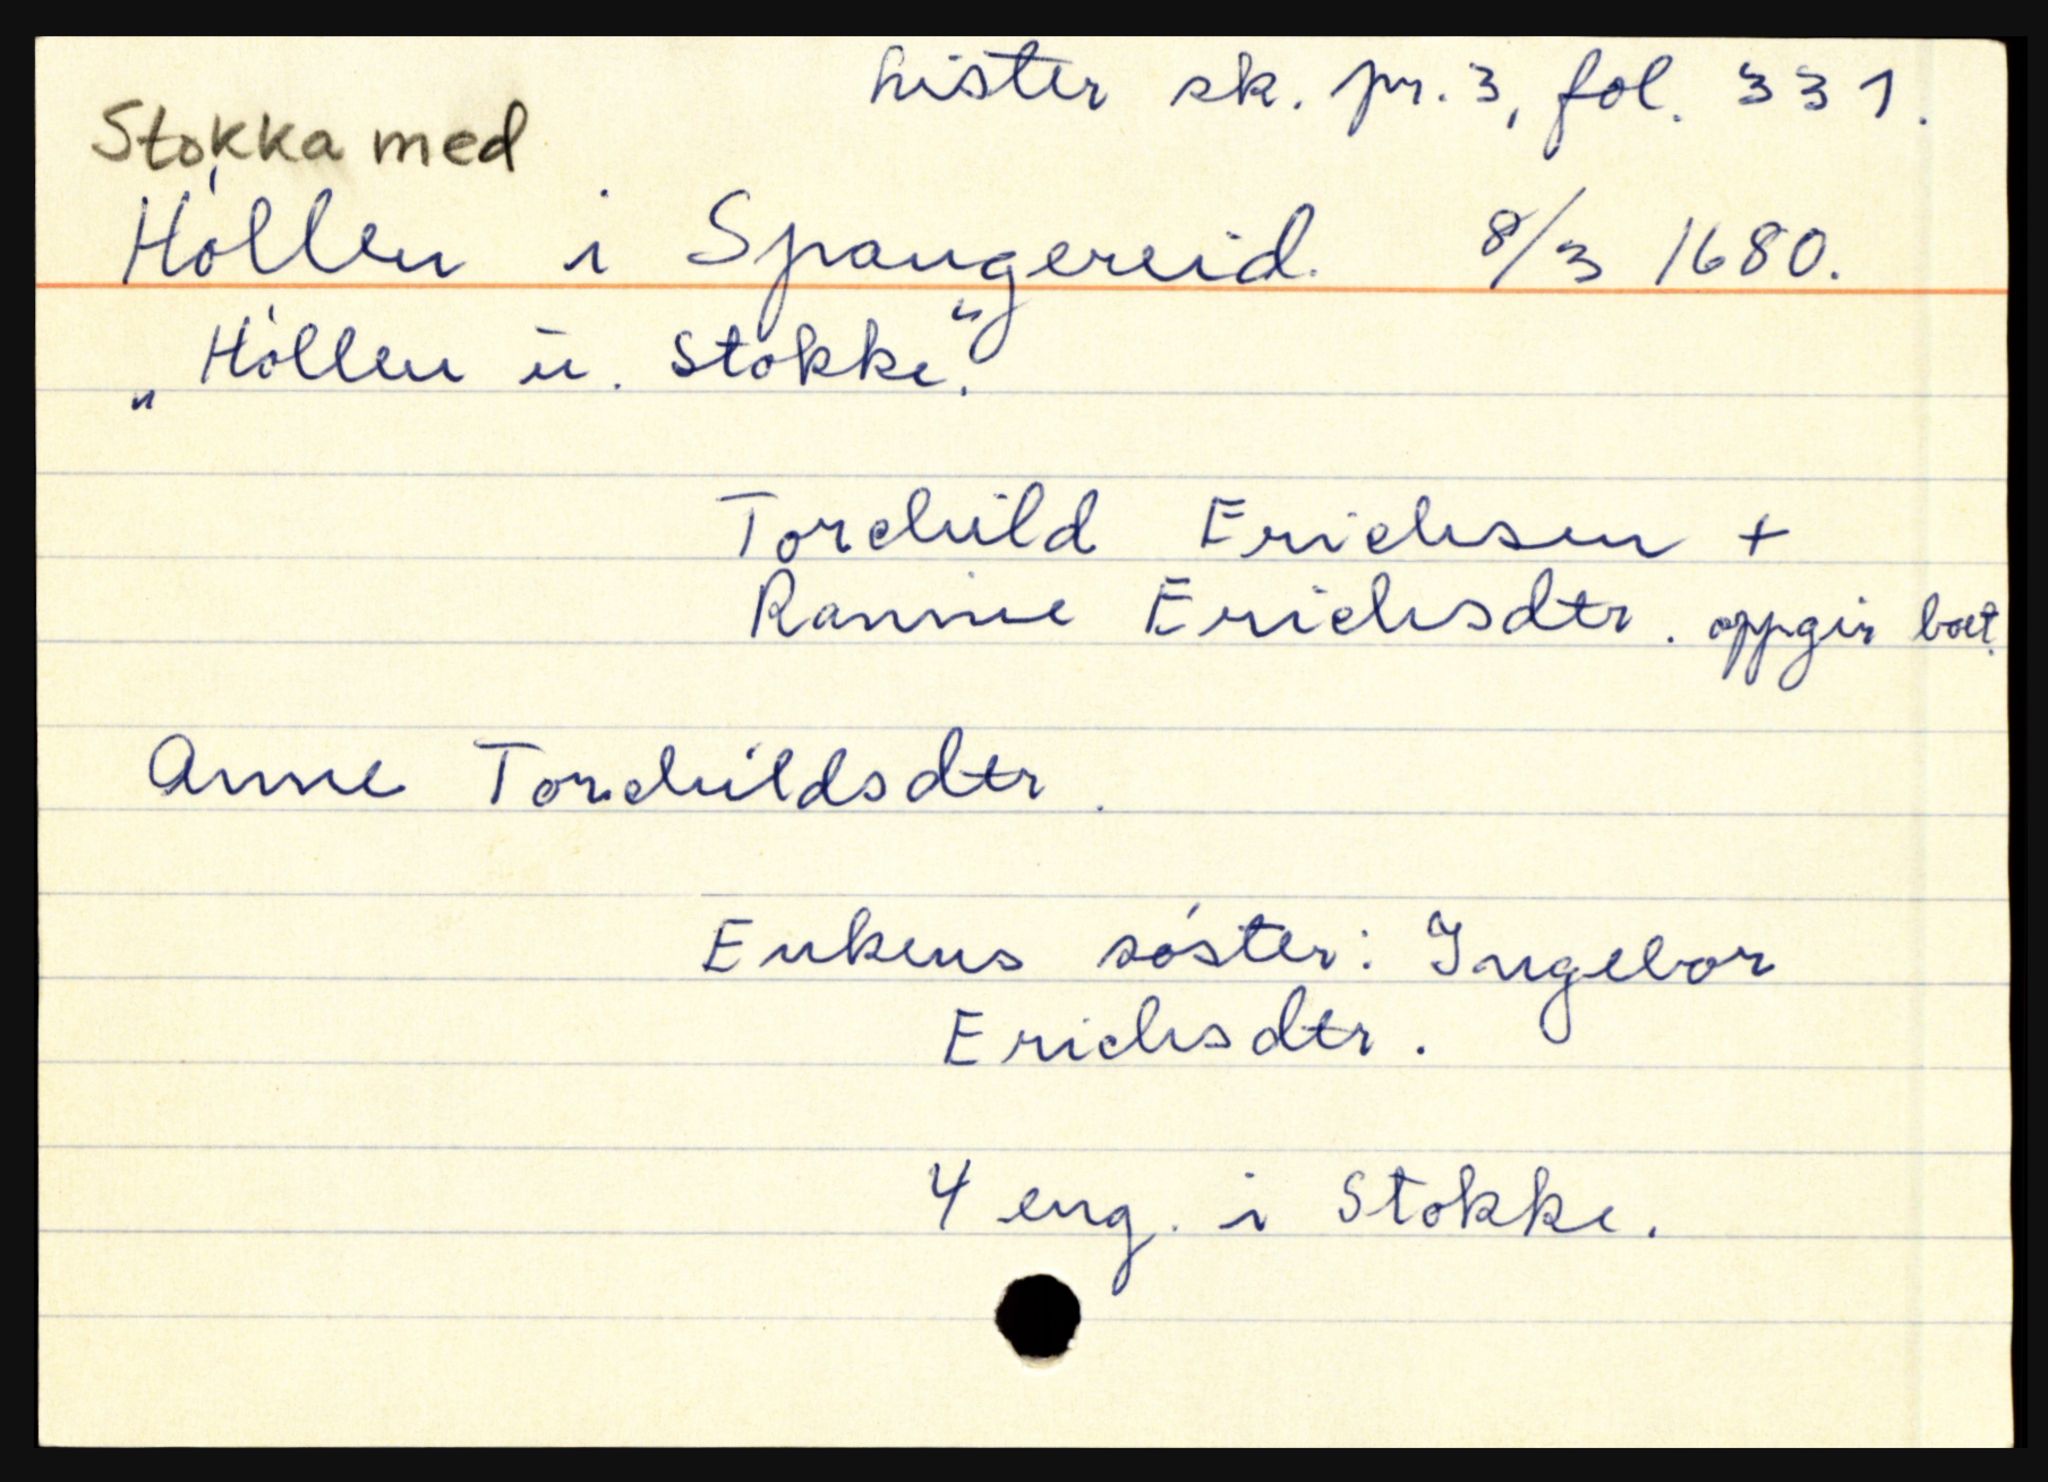 Lister sk. pr. 3, fol. 331.
Stokka med
Hóllen i Spangereid. 8/3 1680.
„Hóllen u. Stokke."
Torchild Erichsen +
Rannie Erichsdtr. oppgir boet.
Anne Torchildsdtr.
Enkens sóster: Ingebor
Erichsdtr.
4 eng. i Stokke.